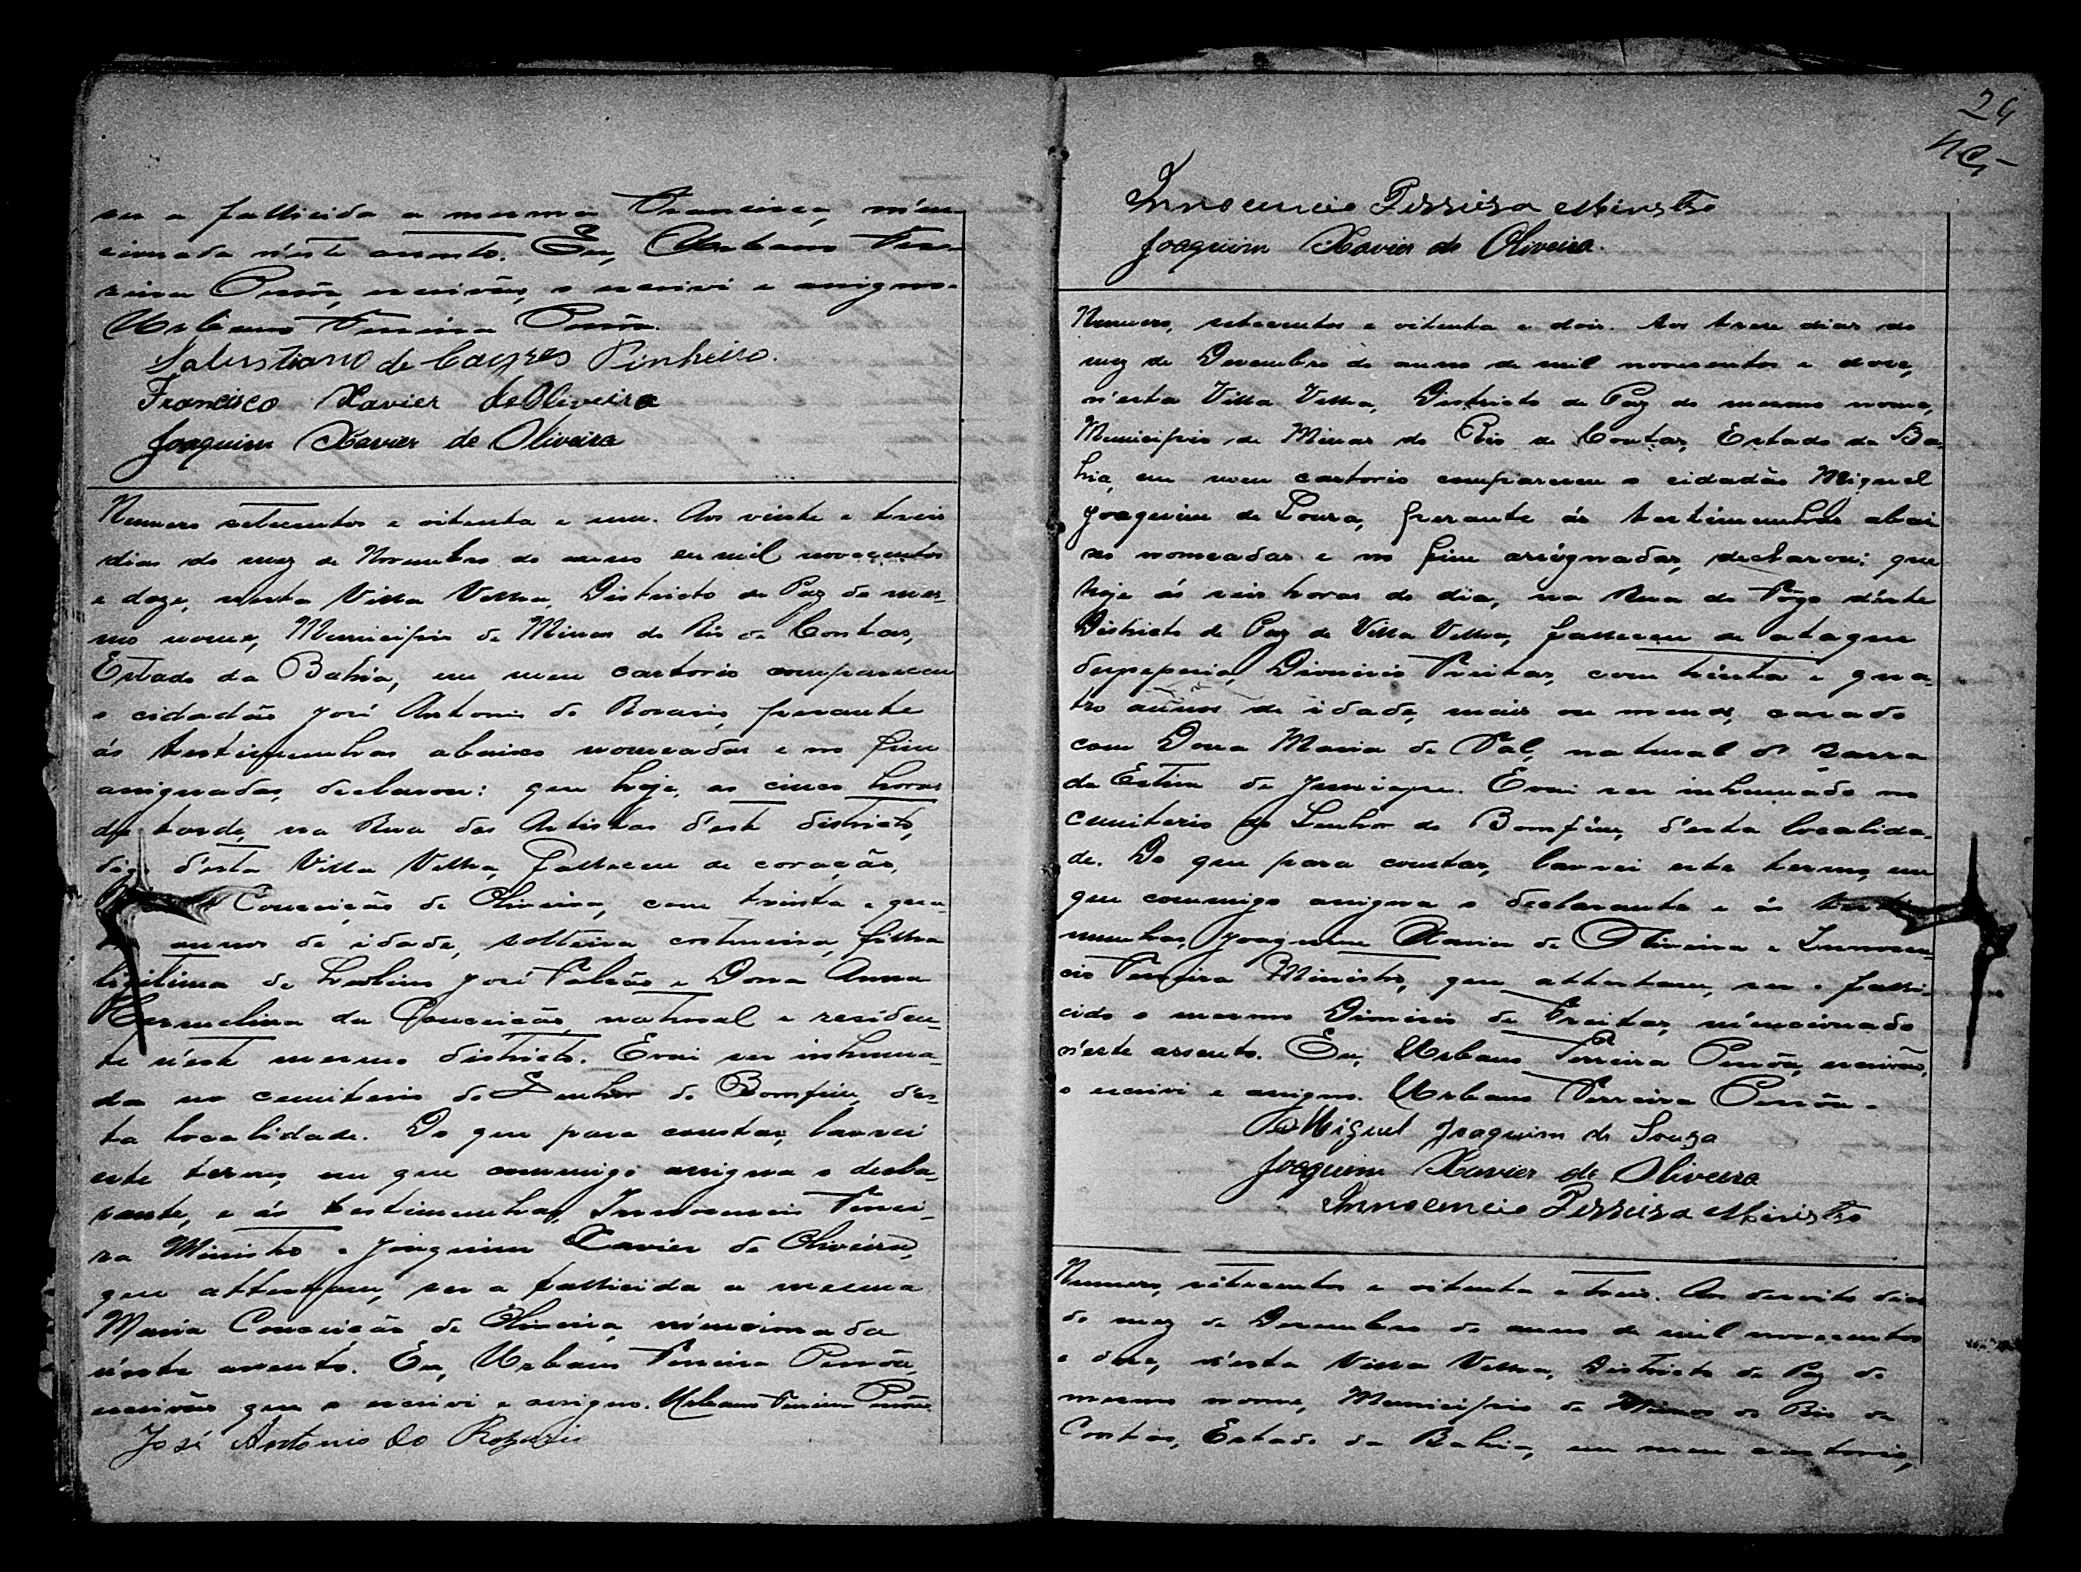 ser a fallicida a mesma Francisca, men-
cionada n'este assento. Eu, Urbano Fer-
reira Penôa, escrivão, o escrivi e assigno.
Urbano Ferreira Penôa.
Salustiano de Cayres Pinheiro.
Francisco Xavier de Oliveira
Joaquim Xavier de Oliveira
Numero setecentos e oitenta e um. Aos vinte e treis
dias do mez de Novembro do anno de mil novecentos
e doze, nesta Villa Velha, Districto de Paz do mes-
mo nome, Municipio de Minas do Rio de Contas,
Estado da Bahia, em meu cartorio compareceu
o cidadão José Antonio do Rosario, perante
ás testimunhas abaixo nomeadas e no fim
assignadas, declarou: que hoje, as cinco horas
da tarde, na Rua das Artistas d'este districto,
d'esta Villa Velha, falleceu de coração,
Conceição de Oliveira, com trinta e qua-
annos de idade, solteira costureira, filha
ligitima de José Falcão e Dona Anna
Carmelina da Conceição, natural e residen-
te n'este mesmo districto. E vai ser inhuma-
da no cemiterio do Senhor do Bomfim, des-
ta localidade. Do que para constar, lavrei
este termo, em que commigo assigna o decla-
rante, e ás testimunhas, Innocencio Ferrei-
ra Ministro e Joaquim Xavier de Oliveira,
que attestam, ser a fallicida a mesma
Maria Conceição de Oliveira, mencionada
n'este assento. Eu, Urbano Ferreira Penôa,
escrivão que o escrivi e assigno. Urbano Ferreira Penôa
José Antonio do Rozario
24
Innocencio Ferreira Ministro
Joaquim Xavier de Oliveira.
Numero, setecentos e oitenta e dois. Aos trese dias do
mez de Desembro do anno de mil novesentos e dose,
n'esta Villa Velha, Districto de Paz do mesmo nome,
Municipio de Minas do Rio de Contas, Estado da Ba-
hia, em meu cartorio compareceu o cidadão Miguel
Joaquim de Souza, perante ás testimunhas abai-
xo nomeadas e no fim assignadas, declarou: que
hoje ás seis horas do dia, na Rua do Fôgo d'este
Districto de Paz de Villa Velha, falleceu de ataque
Dionisio Freitas, com trinta e qua-
tro annos de idade, mais ou menos, casado
com Dona Maria de Tal, natural da Barra
da Estiva de Jussiape. E vai ser inhumado no
cemiterio do Senhor do Bomfim, d'esta localida-
de. Do que para constar, lavrei este termo, em
que commigo assigna o declarante e ás testi-
munhas, Joaquim Xavier de Oliveira e Innocen-
cio Ferreira Ministro, que attestam, ser o falli-
cido o mesmo Dionisio de Freitas, mencionado
n'este assento. Eu, Urbano Ferreira Penôa, escrivão,
o escrivi e assigno. Urbano Ferreira Penôa.
Miguel Joaquim de Souza
Joaquim Xavier de Oliveira
Innocencio Ferreira Ministro
Numero, setecentos e oitenta e treis. Aos desoito dias
do mez de Desembro do anno de mil novecentos
e dose, n'esta Villa Velha, Districto de Paz do
mesmo nome, Municipio de Minas do Rio de
Contas, Estado da Bahia, em meu cartorio,